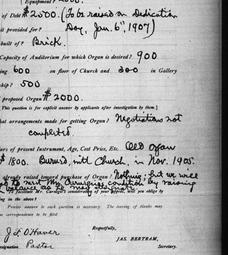 Equipment? 2000.
of Debt? $2000. (To be raised on Dedication
it provided for? Day. Jan. 6", 1907)
built of? Brick.
Capacity of Auditorium for which Organ is desired? 900
ing 600 on floor of Church and 300 in Gallery
ship? 500
proposed Organ? $2000.
[This question is for explicit answer by applicants after investigation by them.]
hat arrangements made for getting Organ? Negotiations not
completed.
ars of present Instrument, Age, Cost Price, Etc. Old organ
$1800. Burned, with Church, in Nov. 1905.
already raised toward purchase of Organ? Nothing, but we will
by raising
balance as he may
ing in the above?
Precise answer to each question is necessary. The leaving of blanks may
no correspondence to be filed.
Respectfully,
J L O'Haver
JAS. BERTRAM,
esignation Pastor Secretary.